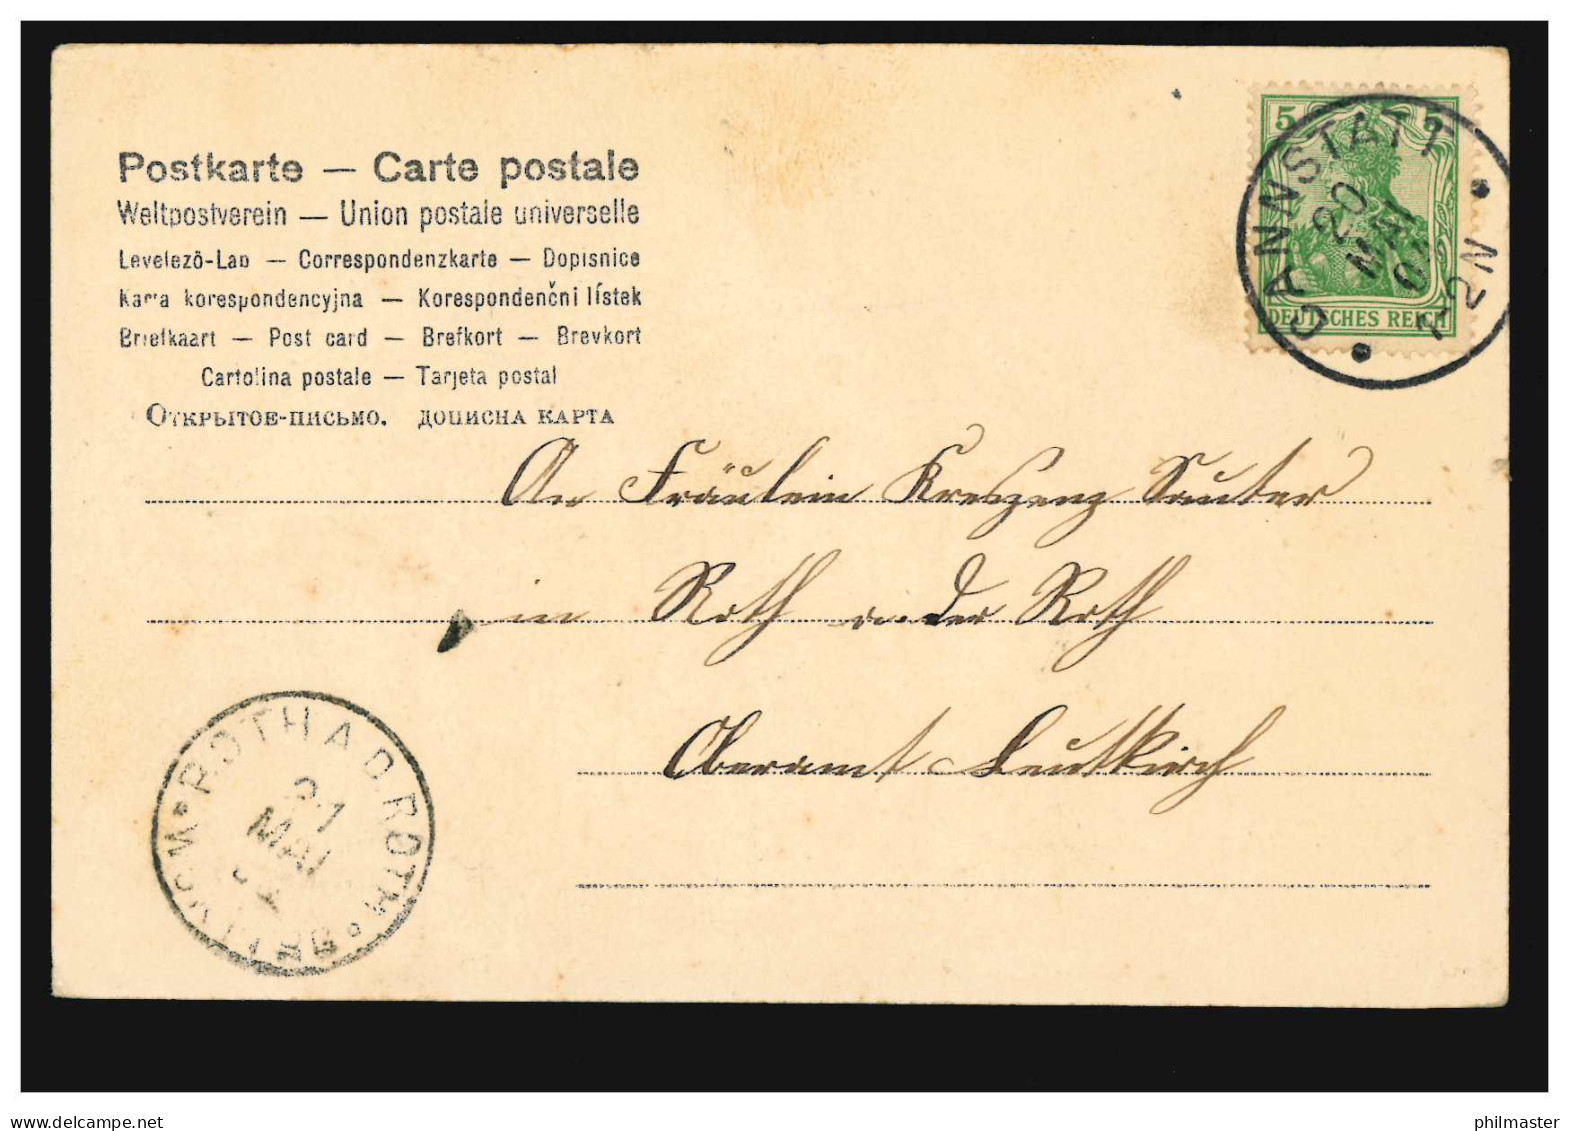 Postkarte — Carte postale
Weltpostverein — Union postale universelle
Levelezõ-Lap — Correspondenzkarte — Dopisnice
Karta korespondencyjna — Korespondenčni lístek
Briefkaart — Post card — Brefkort — Brevkort
Cartolina postale — Tarjeta postal
Открытое-письмо. дописна карта
5 5
DEUTSCHES REICH
CANNSTATT
20
MAI
2N
An Fräulein Kreszenz Sauter
in Roth an der Roth
Oberamt Leutkirch
ROTH A.D. ROTH
21
MAI
Delcampe.net
philmaster